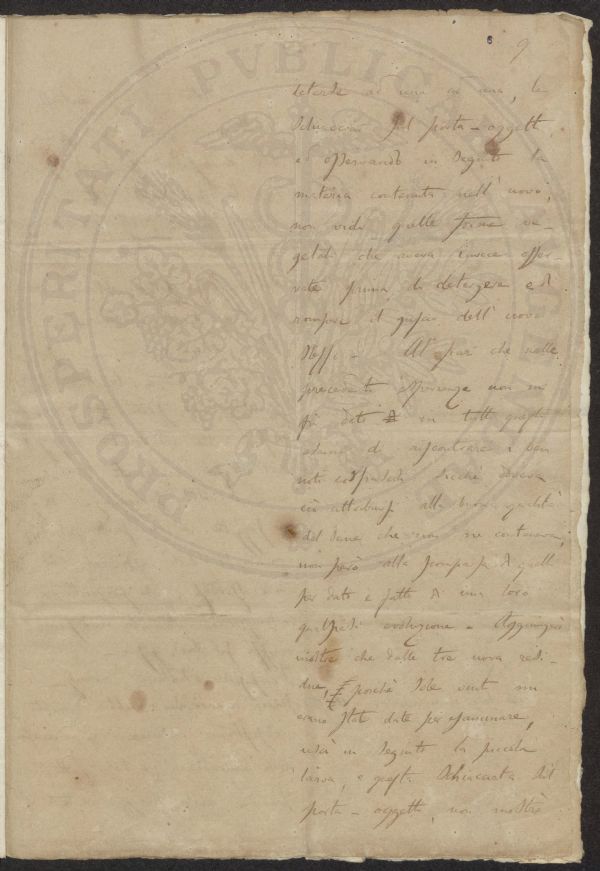 9
detersi ad una ad una, le
schiacciai sul porta-oggetti,
ed osservando in seguito la
materia contenuta nell' uovo,
non vidi quelle forme ve-
getali che aveva invece osser-
vate prima di detergere e di
rompere il guscio dell' uovo
stesso - Al pari che nelle
precedenti esperienze non mi
fù dato in tutti questi
esami di riscontrare i ben
noti corpuscoli sicchè doveva
ciò attribuirsi alla buona qualità
del seme che non ne conteneva,
non però alla scomparsa di quelli
per dato e fatto di una loro
qualsiasi evoluzione - Aggiungerò
inoltre che dalle tre uova resi-
due, poichè sole venti mi
erano state date per esaminare,
uscì in seguito la piccola
larva, e questa schiacciata sul
porta-oggetti, non mostrò
PROSPERITATI PVBLICAE